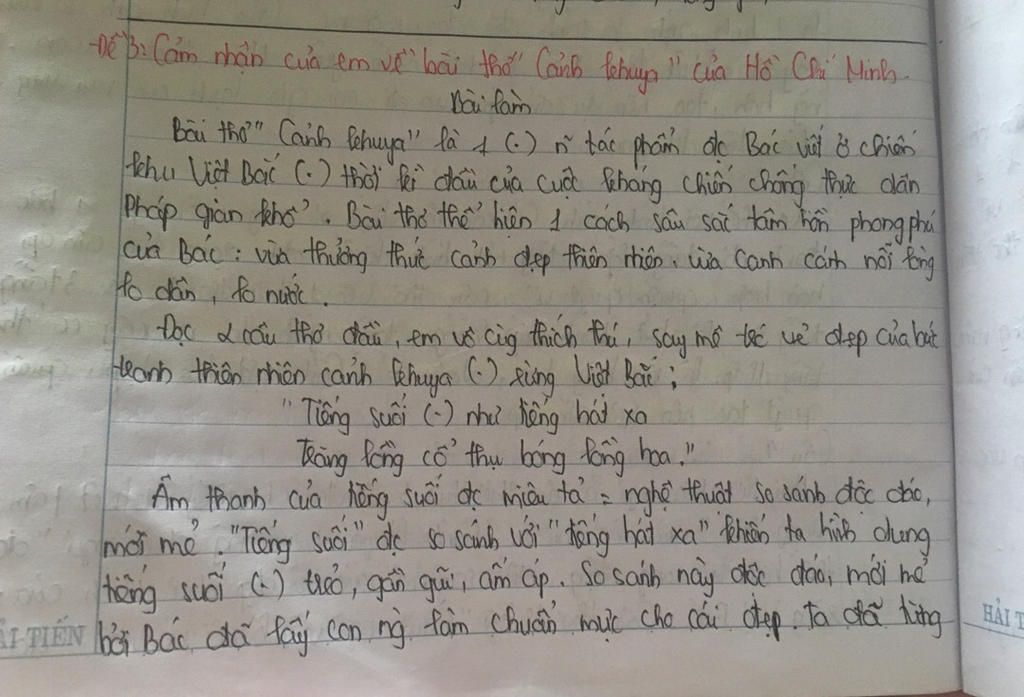 Đề 3: Cảm nhận của em về bài thơ "Cảnh khuya" của Hồ Chí Minh.
Bài làm
Bài thơ "Cảnh khuya" là 1 (.) n~ tác phẩm đc Bác viết ở chiến
khu Việt Bắc (.) thời kì đầu của cuộc kháng chiến chống thực dân
Pháp gian khổ. Bài thơ thể hiện 1 cách sâu sắc tâm hồn phong phú
của Bác: vừa thưởng thức cảnh đẹp thiên nhiên, vừa canh cánh nỗi lòng
lo dân, lo nước.
Đọc 2 câu thơ đầu, em vô cùg thích thú, say mê trc vẻ đẹp của bức
tranh thiên nhiên cảnh khuya (.) rừng Việt Bắc:
"Tiếng suối (.) như tiếng hát xa
Trăng lồng cổ thụ bóng lồng hoa."
Âm thanh của tiếng suối đc miêu tả = nghệ thuật so sánh độc đáo,
mới mẻ. "Tiếng suối" đc so sánh với "tiếng hát xa" khiến ta hình dung
tiếng suối (.) trẻo, gần gũi, ấm áp. So sánh này độc đáo, mới mẻ
bởi Bác đã lấy con ng` làm chuẩn mực cho cái đẹp. Ta đã từng
ẢI TIẾN
HẢI T